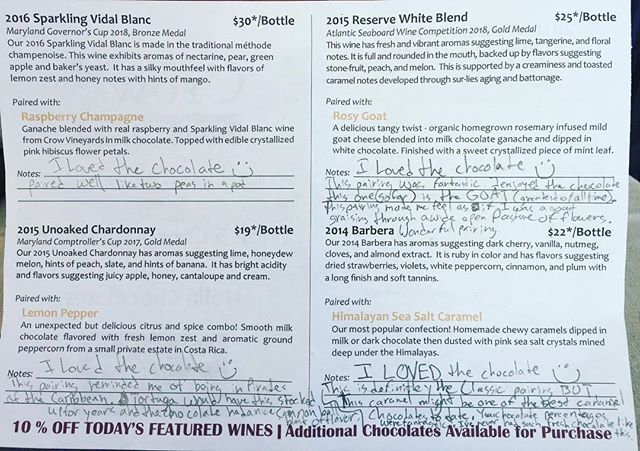 2016 Sparkling Vidal Blanc $30*/Bottle
Maryland Governor's Cup 2018, Bronze Medal
Our 2016 Sparkling Vidal Blanc is made in the traditional méthode
champenoise. This wine exhibits aromas of nectarine, pear, green
apple and baker's yeast. It has a silky mouthfeel with flavors of
lemon zest and honey notes with hints of mango.
Paired with:
Raspberry Champagne
Ganache blended with real raspberry and Sparkling Vidal Blanc wine
from Crow Vineyards in milk chocolate. Topped with edible crystallized
pink hibiscus flower petals.
Notes: I loved the chocolate
paired well like two peas in a pod
2015 Reserve White Blend $25*/Bottle
Atlantic Seaboard Wine Competition 2018, Gold Medal
This wine has fresh and vibrant aromas suggesting lime, tangerine, and floral
notes. It is full and rounded in the mouth, backed up by flavors suggesting
stone-fruit, peach, and melon. This is supported by a creaminess and toasted
caramel notes developed through sur-lies aging and battonage.
Paired with:
Rosy Goat
A delicious tangy twist - organic homegrown rosemary infused mild
goat cheese blended into milk chocolate ganache and dipped in
white chocolate. Finished with a sweet crystallized piece of mint leaf.
Notes: I Loved the chocolate
This pairing was fantastic I enjoyed the chocolate
this one (so far) is the GOAT (greatest of all time)
this pairing made me feel as if I was a goat
graising through a wide open pasture of flowers.
Wonderful pairing
2015 Unoaked Chardonnay $19*/Bottle
Maryland Comptroller's Cup 2017, Gold Medal
Our 2015 Unoaked Chardonnay has aromas suggesting lime, honeydew
melon, hints of peach, slate, and hints of banana. It has bright acidity
and flavors suggesting juicy apple, honey, cantaloupe and cream.
Paired with:
Lemon Pepper
An unexpected but delicious citrus and spice combo! Smooth milk
chocolate flavored with fresh lemon zest and aromatic ground
peppercorn from a small private estate in Costa Rica.
Notes: I loved the chocolate
This pairing reminded me of being in Pirates
of the Caribbean. Tortuga would have this stocked
up for years and the chocolate
2014 Barbera $22*/Bottle
Our 2014 Barbera has aromas suggesting dark cherry, vanilla, nutmeg,
cloves, and almond extract. It is ruby in color and has flavors suggesting
dried strawberries, violets, white peppercorn, cinnamon, and plum with
a long finish and soft tannins.
Paired with:
Himalayan Sea Salt Caramel
Our most popular confection! Homemade chewy caramels dipped in
milk or dark chocolate then dusted with pink sea salt crystals mined
deep under the Himalayas.
Notes: I LOVED the chocolate
This is definitely the classic pairing BUT
This caramel might be one of the best caramel
chocolates to date. Your chocolate percentages
were fantastic I've never had such fresh chocolate like this
10 % OFF TODAY'S FEATURED WINES | Additional Chocolates Available for Purchase